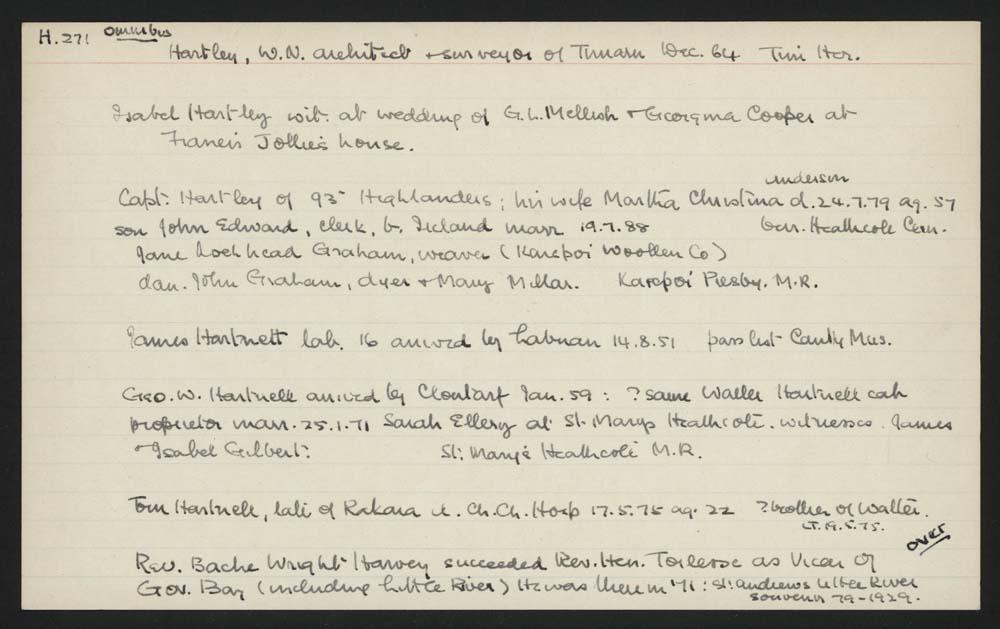 H.271 Omnibus
Hartley, W.N. architect + surveyor of Timaru Dec. 64 Tim Her.
Isabel Hartley wit. at wedding of G.L. Mellish + Georgina Cooper at
Francis Jollie's house.
Anderson
Capt. Hartley of 93 Highlanders; his wife Martha Christina d. 24.7.79 ag. 57
son John Edward, clerk, b. Ireland marr 19.7.88 bur. Heathcote Cem.
Jane Lockhead Graham, weaver (Kaiapoi Woollen Co)
dau. John Graham, dyer + Mary Millar. Kaiapoi Presby. M.R.
James Hartnett lab. 16 arrived by Labuan 14.8.51 pass list Canty Mus.
Geo. W. Hartnell arrived by Clontarf Jan. 59 : ? same Walter Hartnell cab
proprietor marr. 25.1.71 Sarah Ellery at St. Marys Heathcote. witnesses. James
+ Isabel Gilbert. St. Mary's Heathcote M.R.
Tom Hartnell, late of Rakaia d. Ch.Ch. Hosp 17.5.75 ag. 22 ? brother of Walter.
LT. 19.5.75.
over
Rev. Bache Wright Harvey succeeded Rev. Hen. Torlesse as Vicar of
Gov. Bay (including Little River) He was there in '71 : St. Andrews Little River
souvenir 79-1929.